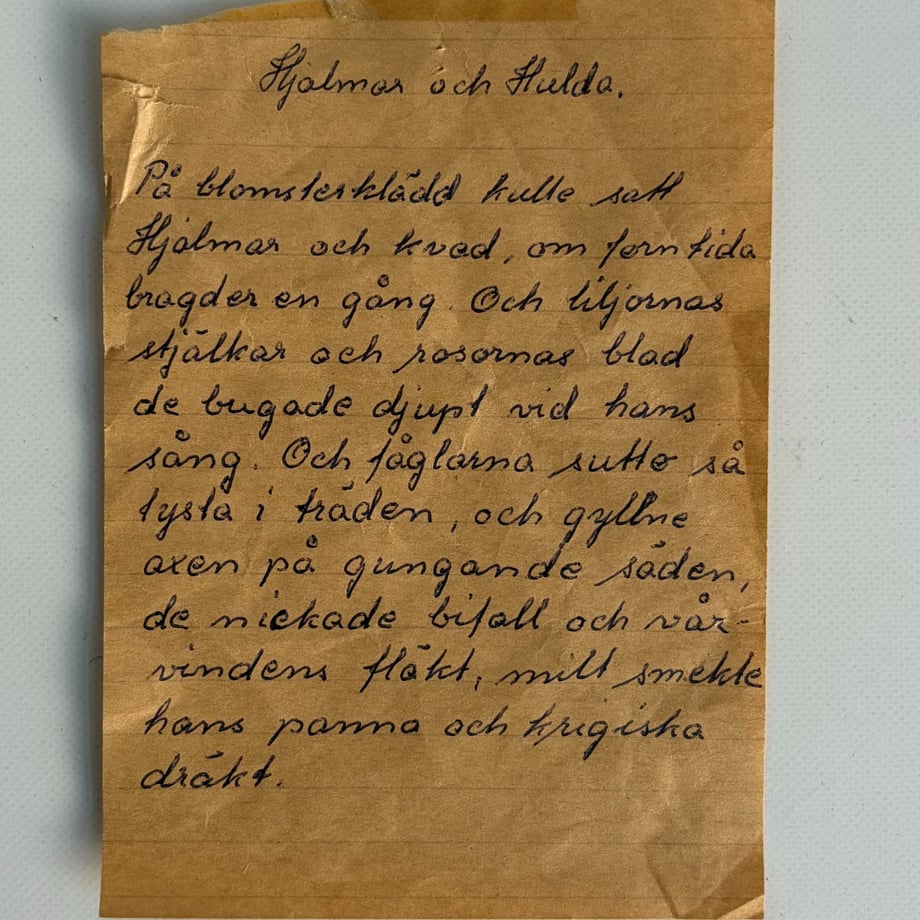 Hjalmar och Hulda.
På blomsterklädd kulle satt
Hjalmar och kvad, om forntida
bragder en gång. Och liljornas
stjälkar och rosornas blad
de bugade djupt vid hans
sång. Och fåglarna sutto så
tysta i träden, och gyllne
axen på gungande säden,
de nickade bifall och vår-
vindens fläkt, milt smekte
hans panna och krigiska
dräkt.